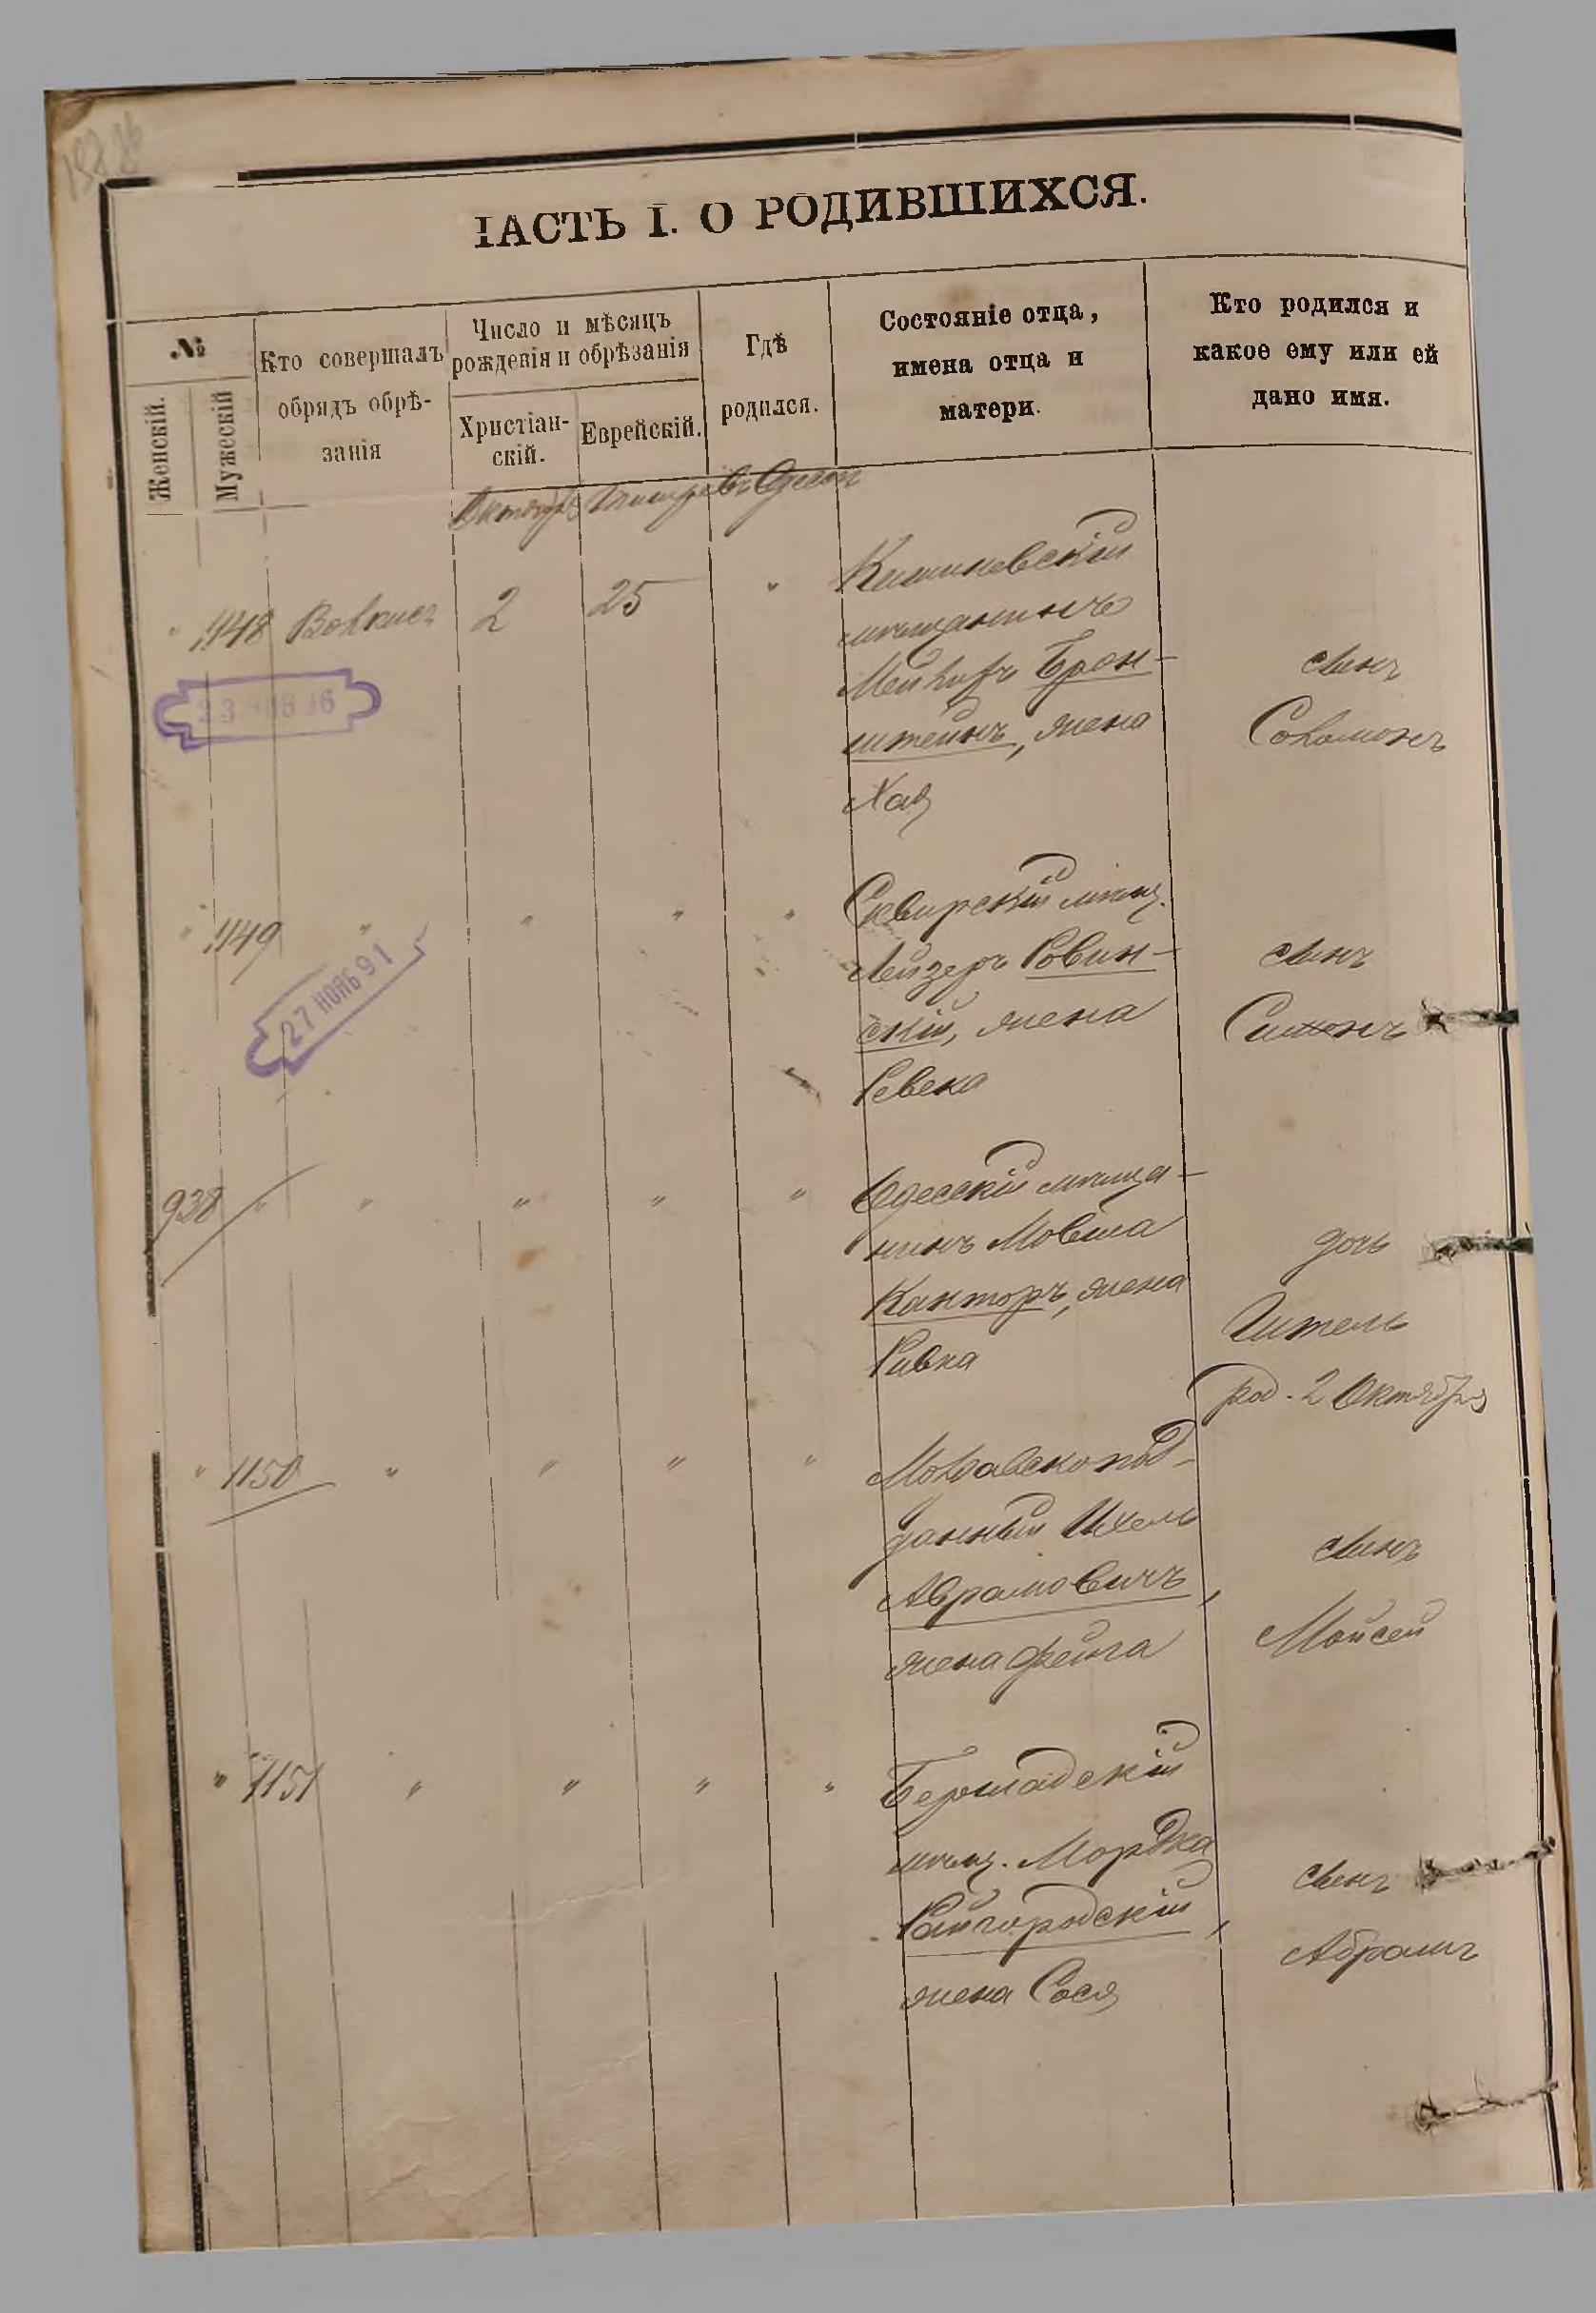 ЧАСТЬ I. О РОДИВШИХСЯ.
№
Женскій.
Мужескій
Кто совершалъ
обрядъ обрѣ-
занія
Число и мѣсяцъ
рожденія и обрѣзанія
Христіан-
скій.
Еврейскій.
Гдѣ
родился.
Состояніе отца,
имена отца и
матери.
Кто родился и
какое ему или ей
дано имя.
Октябрь Тишри въ Одессѣ
" 1148 2 25 "
Кишиневскій
мѣщанинъ
Мейлихъ Брон-
штейнъ, жена
Хая
сынъ
Соломонъ
" 1149 " " " "
27 НОЯБ 91
Сквирскій мѣщ.
Лейзеръ Ровин-
скій, жена
Ревека
сынъ
Симонъ
938 " " " " "
Одесскій мѣща-
нинъ Мовша
Канторъ, жена
Ривка
дочь
Гитель
род. 2 Октября
" 1150 " " " "
Молдавскопод-
данный Ихель
Абрамовичъ,
жена Фейга
сынъ
Мойсей
" 1151 " " " "
Бершадскій
мѣщ. Мордка
Райгородскій,
жена Сося
сынъ
Абрамъ